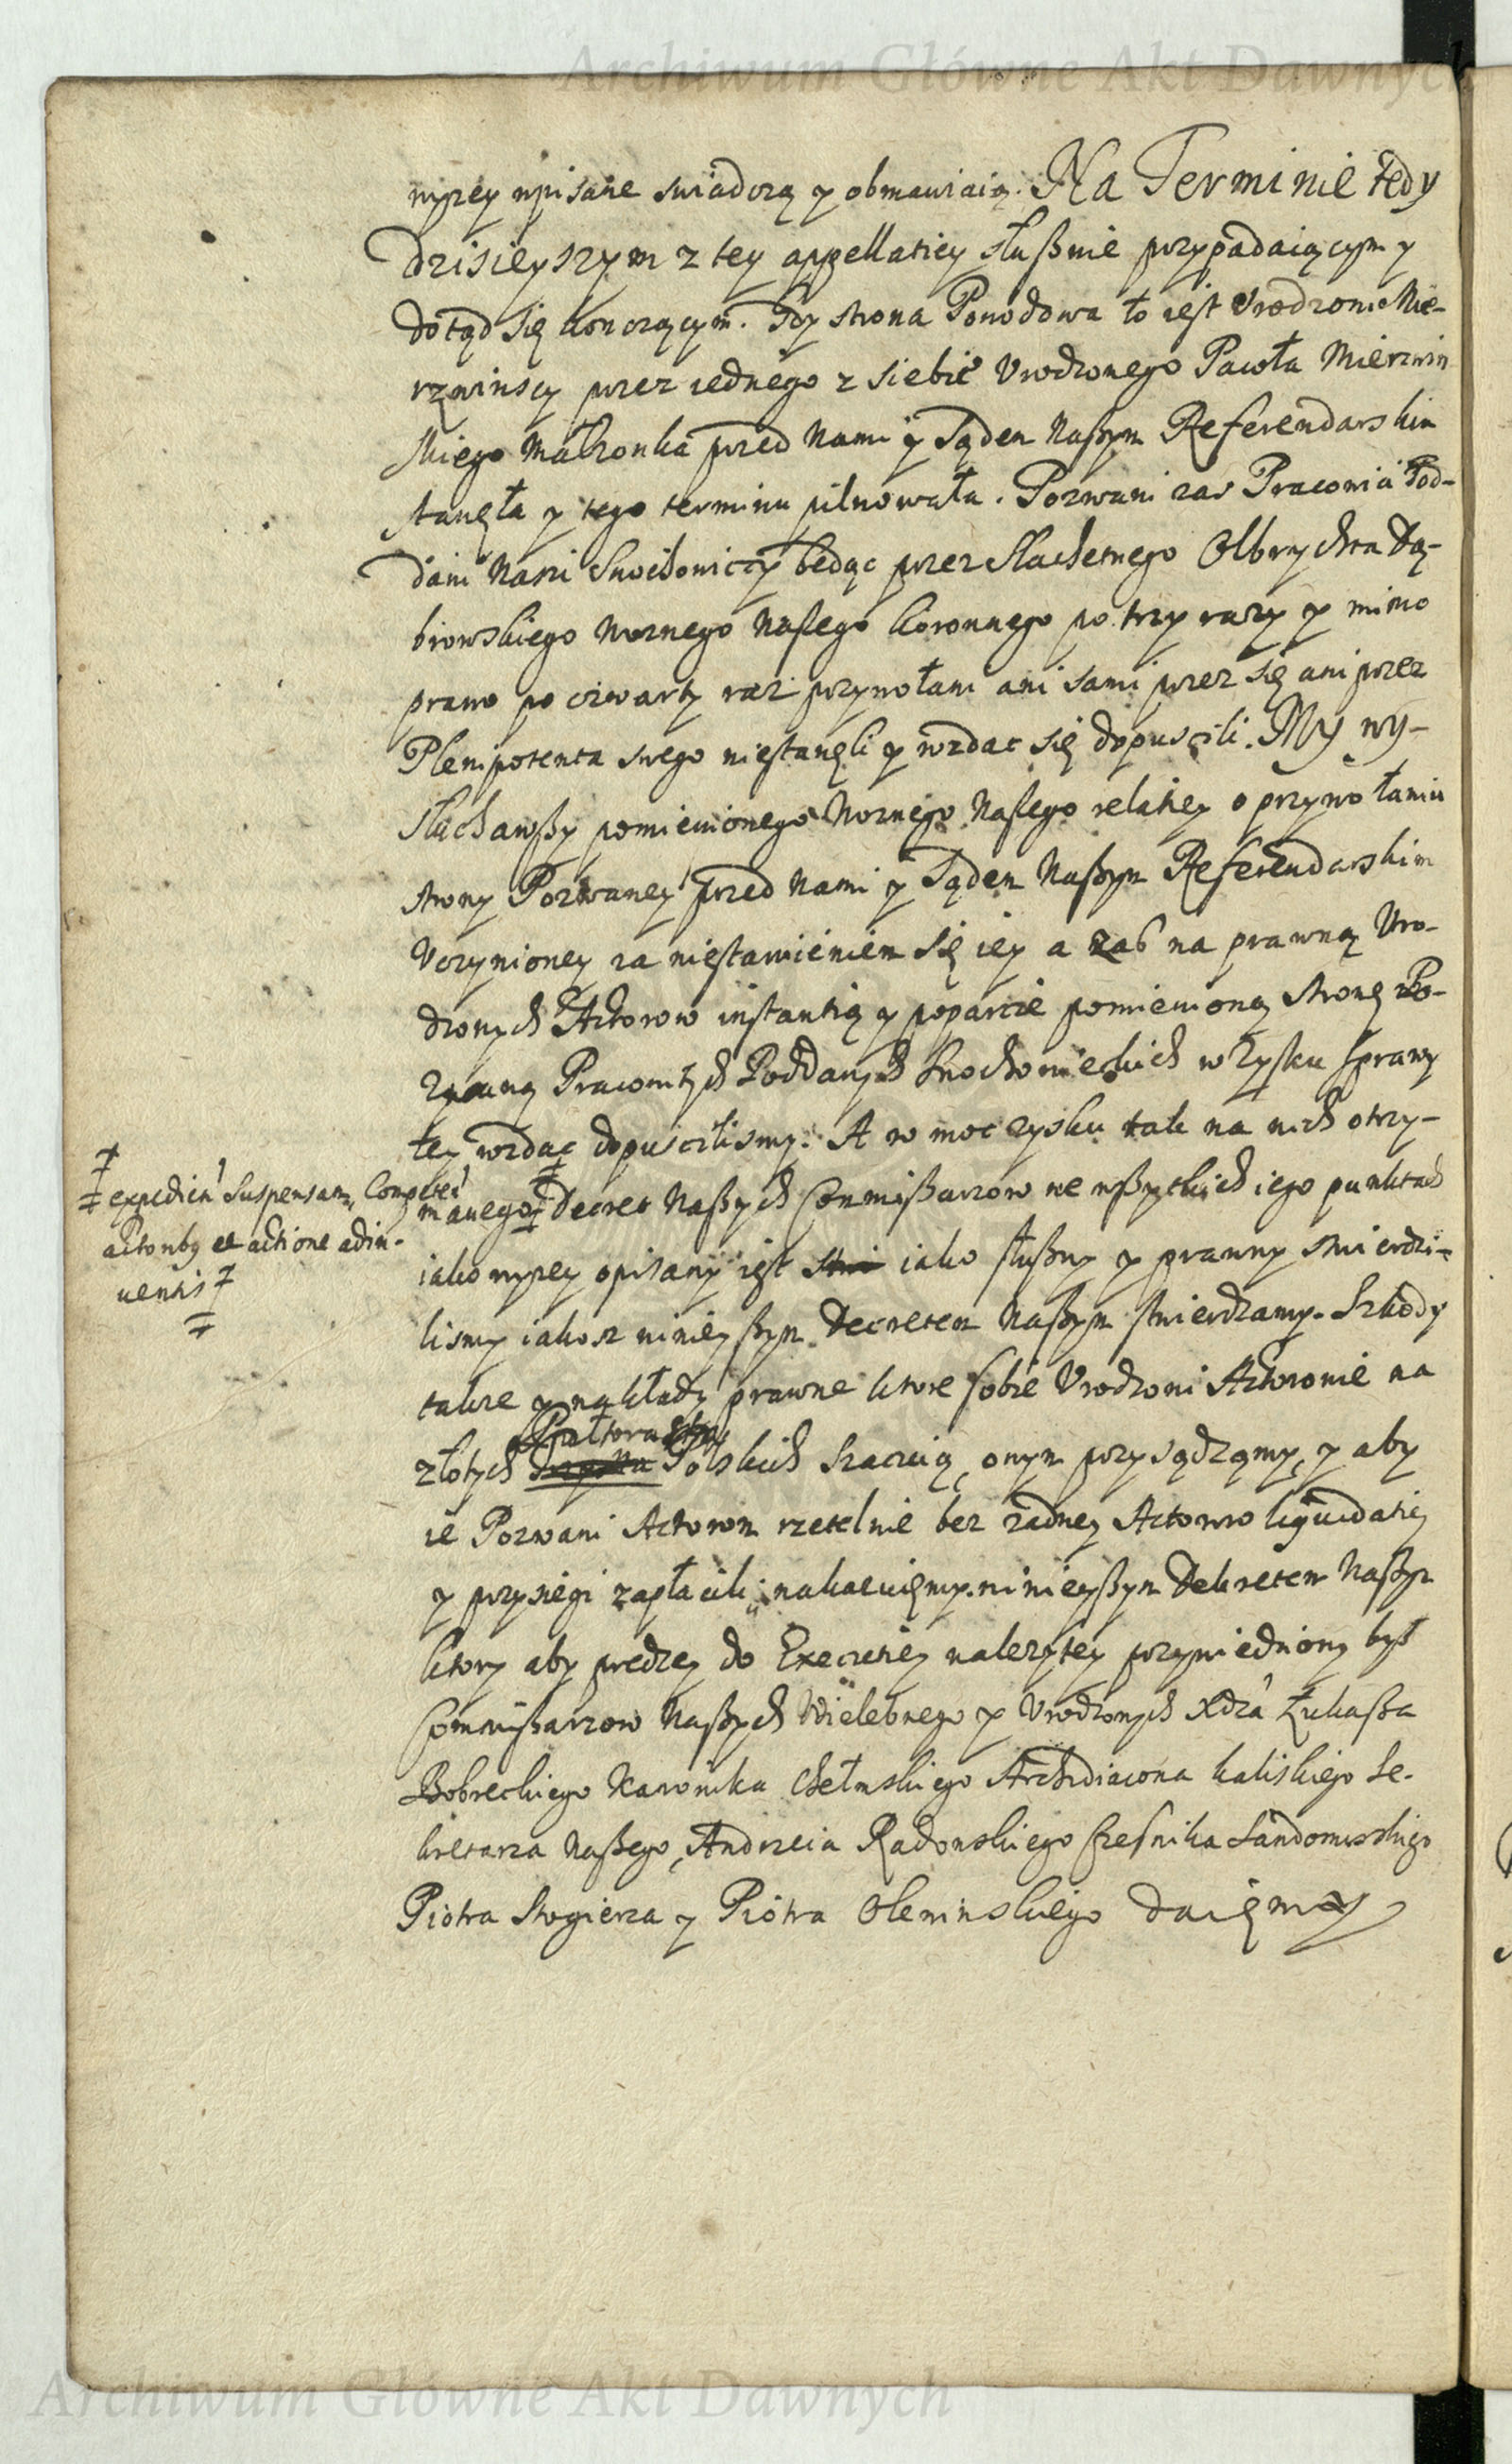 Archiwum Główne Akt Dawnych
wyzey wpisane swiadczą y obmawiaią. Na Terminie tedy
dzisieyszym z tey appellatiey słußnie przypadaiącym y
dotąd się konczącym. Gdy strona Powodowa to iest Vrodzonie Mie-
rzwinscy przez iednego z siebie Vrodzonego Pawła Mierzwin
skiego Małzonka przed Nami y Sądem Naßym Referendarskim
stanęła y tego terminu pilnowała. Pozwani zas Pracowici Pod-
dani Nasi Snochowiccy będąc przez Slachetnego Olbrychta Dą-
browskiego Woznego Naszego koronnego po trzy razy y mimo
prawo po czwarty raz przywołani ani sami przez się ani przez
Plenipotenta swego niestanęli y wzdac się dopuscili. My wy-
słuchawßy pomienionego Woznego Naszego relatiey o przywołaniu
strony Pozwaney przed Nami y Sądem Naßym Referendarskim
Vczynioney za niestawieniem się iey a zas na prawną Vro-
dzonych Aktorow instantią y poparcie pomienioną stronę Po-
zwaną Pracowitych Poddanych Snochowieckich w Zysku sprawy
tey wzdac dopuscilismy. A w moc zysku tak na nich otrzy-
manego Decret Naßych Commißarzow we wßytkich iego punktach
iako wyzey opisany iest iako słußny y prawny stwierdzi-
lismy iakosz ninieyßym Decretem Naßym stwierdzamy. Szkody
takze y nakłady prawne ktore sobie Vrodzoni Aktorowie na
Połtora sta
złotych Polskich szacuią, onym przysądzamy, y aby
ie Pozwani Actorom rzetelnie bez zadney Actorow liquidatiey
y przysiegi zapłacili nakazuięmy ninieyßym Dekretem Naßym
ktory aby prędzey do Execucyey nalezytey przywiedziony był
Commißarzow Naßych Wielebnego y Vrodzonych Xdza Łukaßa
Bobreckiego Kanonika Chełmskiego Archidiacona kaliskiego Se-
kretarza Naßego, Andrzeia Radonskiego Czesnika Sandomirskiego
Piotra Stogierza y Piotra Oleninskiego daięmy
expedien Suspensam, Compet
actoribus et actione adin-
uentis
Archiwum Główne Akt Dawnych